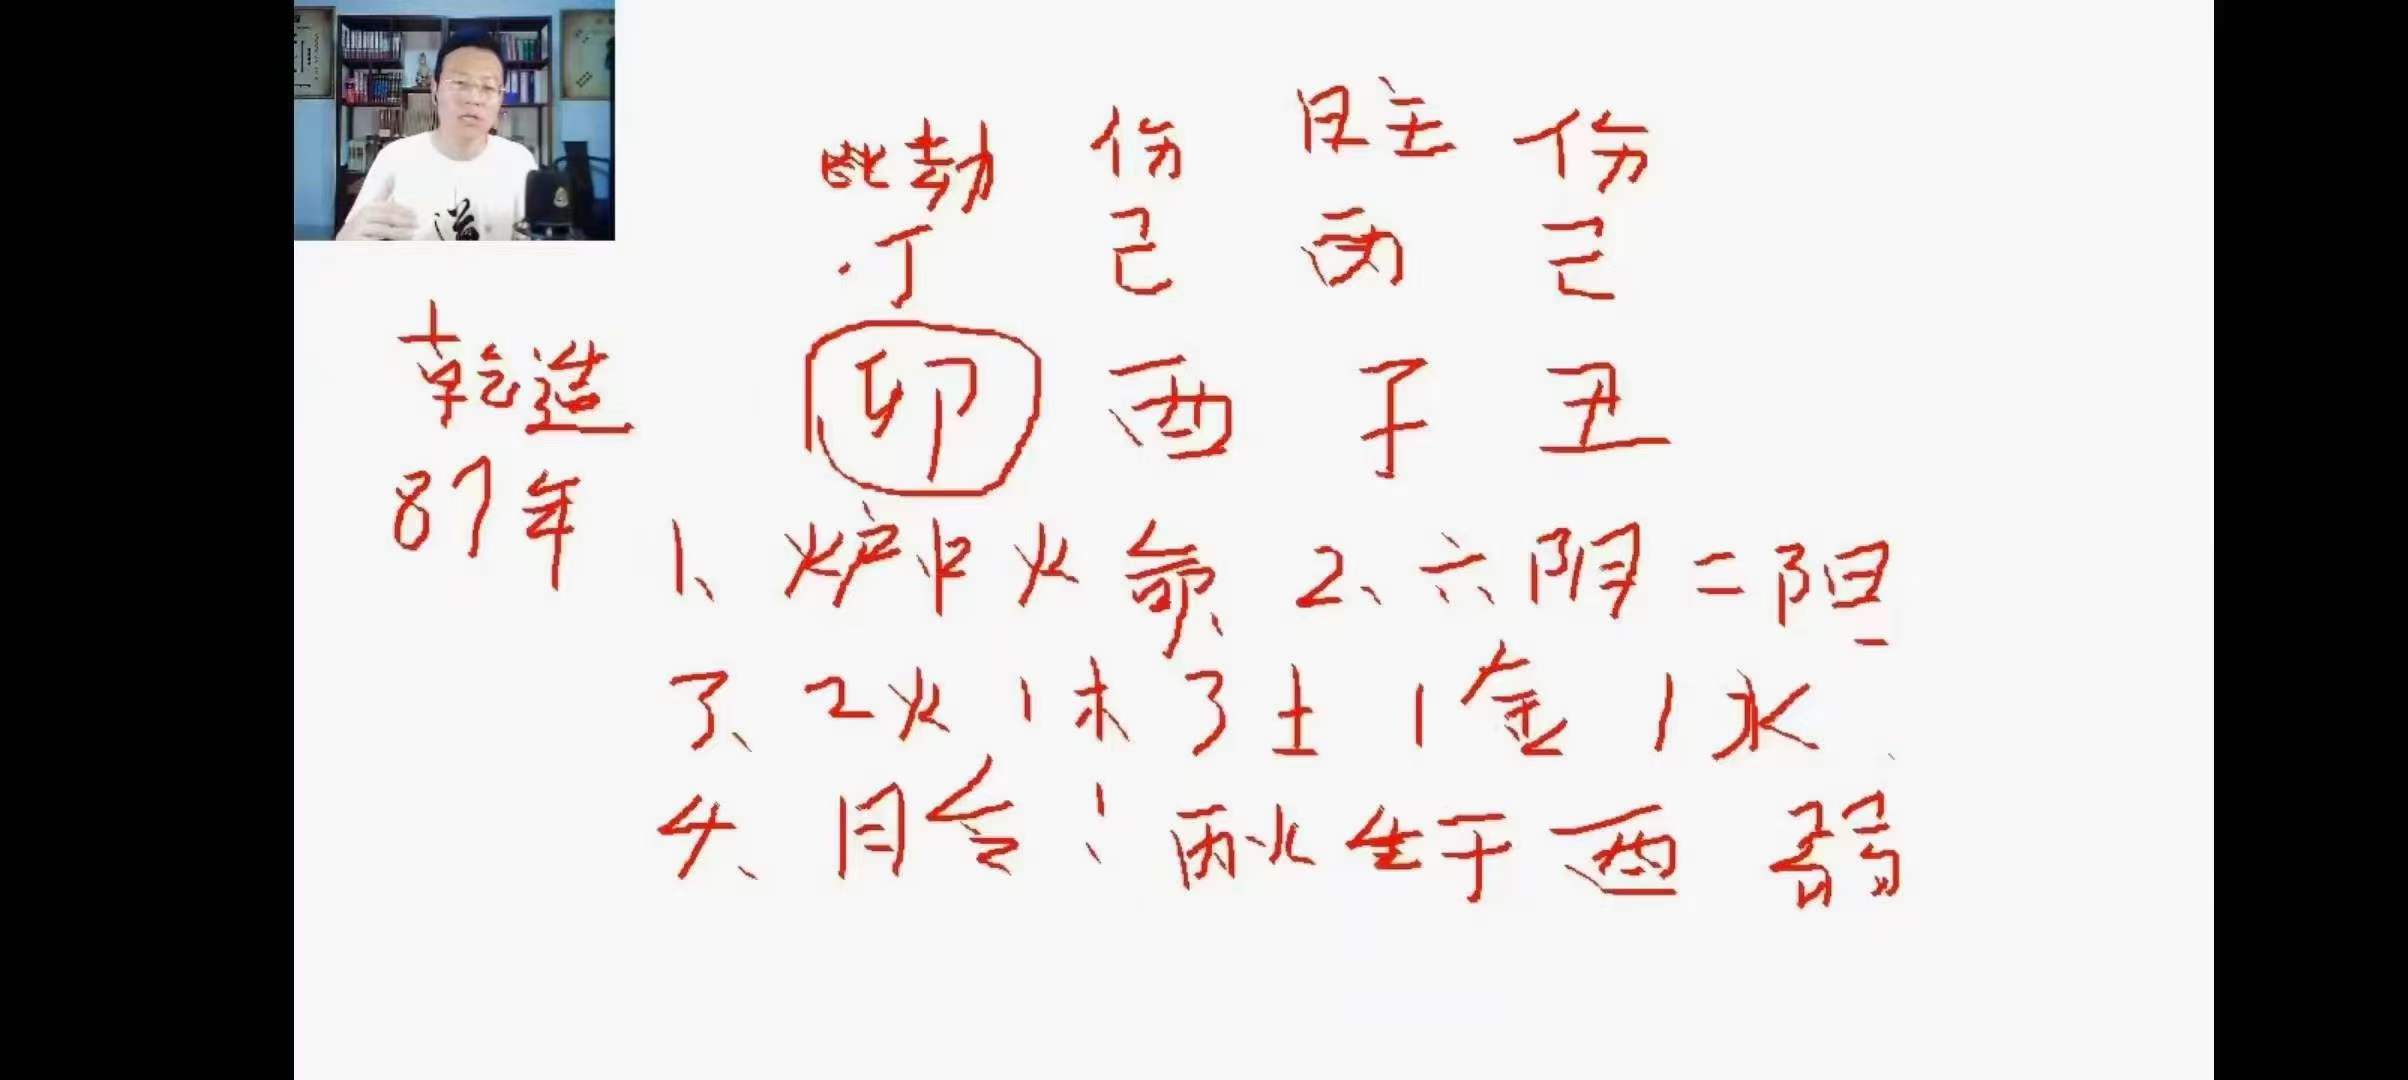 比劫 伤 日主 伤
丁 己 丙 己
乾造 卯 酉 子 丑
87年
1、炉中火命 2、六阴二阳
3、2火1木3土1金1水
4、月令：丙火生于酉 弱
道